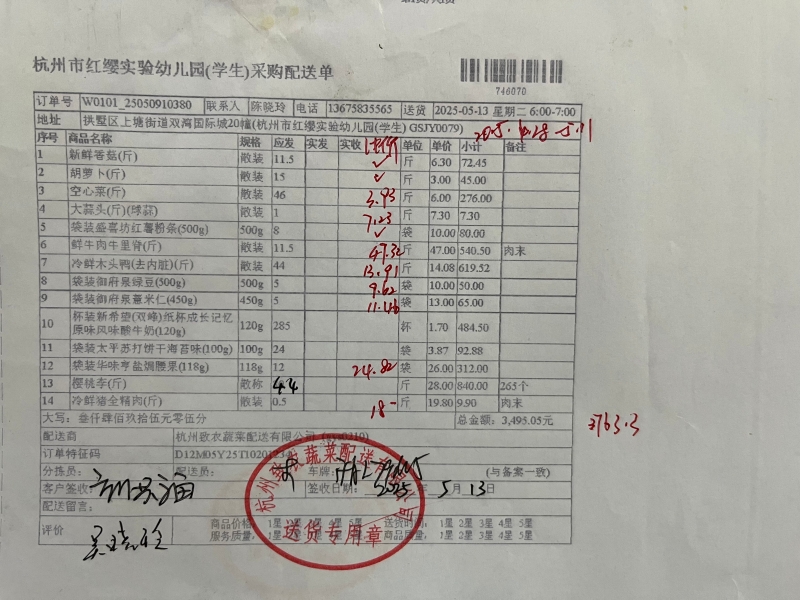 杭州市红缨实验幼儿园(学生)采购配送单
746070
订单号 W0101_25050910380 联系人 陈晓玲 电话 13675835565 送货 2025-05-13 星期二 6:00-7:00
地址 拱墅区上塘街道双湾国际城20幢(杭州市红缨实验幼儿园(学生) GSJY0079)
序号 商品名称 规格 应发 实发 实收 单位 单价 小计 备注
1 新鲜香菇(斤) 散装 11.5 ✓ 斤 6.30 72.45
2 胡萝卜(斤) 散装 15 ✓ 斤 3.00 45.00
3 空心菜(斤) 散装 46 3.93 斤 6.00 276.00
4 大蒜头(斤)(球蒜) 散装 1 7.23 斤 7.30 7.30
5 袋装盛喜坊红薯粉条(500g) 500g 8 ✓ 袋 10.00 80.00
6 鲜牛肉牛里脊(斤) 散装 11.5 47.32 斤 47.00 540.50 肉末
7 冷鲜木头鸭(去内脏)(斤) 散装 44 13.91 斤 14.08 619.52
8 袋装御府泉绿豆(500g) 500g 5 9.62 袋 10.00 50.00
9 袋装御府泉薏米仁(450g) 450g 5 袋 13.00 65.00
10 杯装新希望(双峰)纸杯成长记忆原味风味酸牛奶(120g) 120g 285 杯 1.70 484.50
11 袋装太平苏打饼干海苔味(100g) 100g 24 袋 3.87 92.88
12 袋装华味亨盐焗腰果(118g) 118g 12 24.82 袋 26.00 312.00
13 樱桃李(斤) 散称 44 斤 28.00 840.00 265个
14 冷鲜猪全精肉(斤) 散装 0.5 18- 斤 19.80 9.90 肉末
大写：叁仟肆佰玖拾伍元零伍分 总金额：3,495.05元
3763.3
配送商 杭州致衣蔬菜配送有限公司
订单特征码
分拣员： 配送员： 车牌： (与备案一致)
客户签收： 签收日期： 2025 年 5 月 13 日
配送留言：
评价 商品价格, 1星 2星 3星 4星 5星 送货时间, 1星 2星 3星 4星 5星
服务质量, 1星 商品质量, 1星 2星 3星 4星 5星
送货专用章